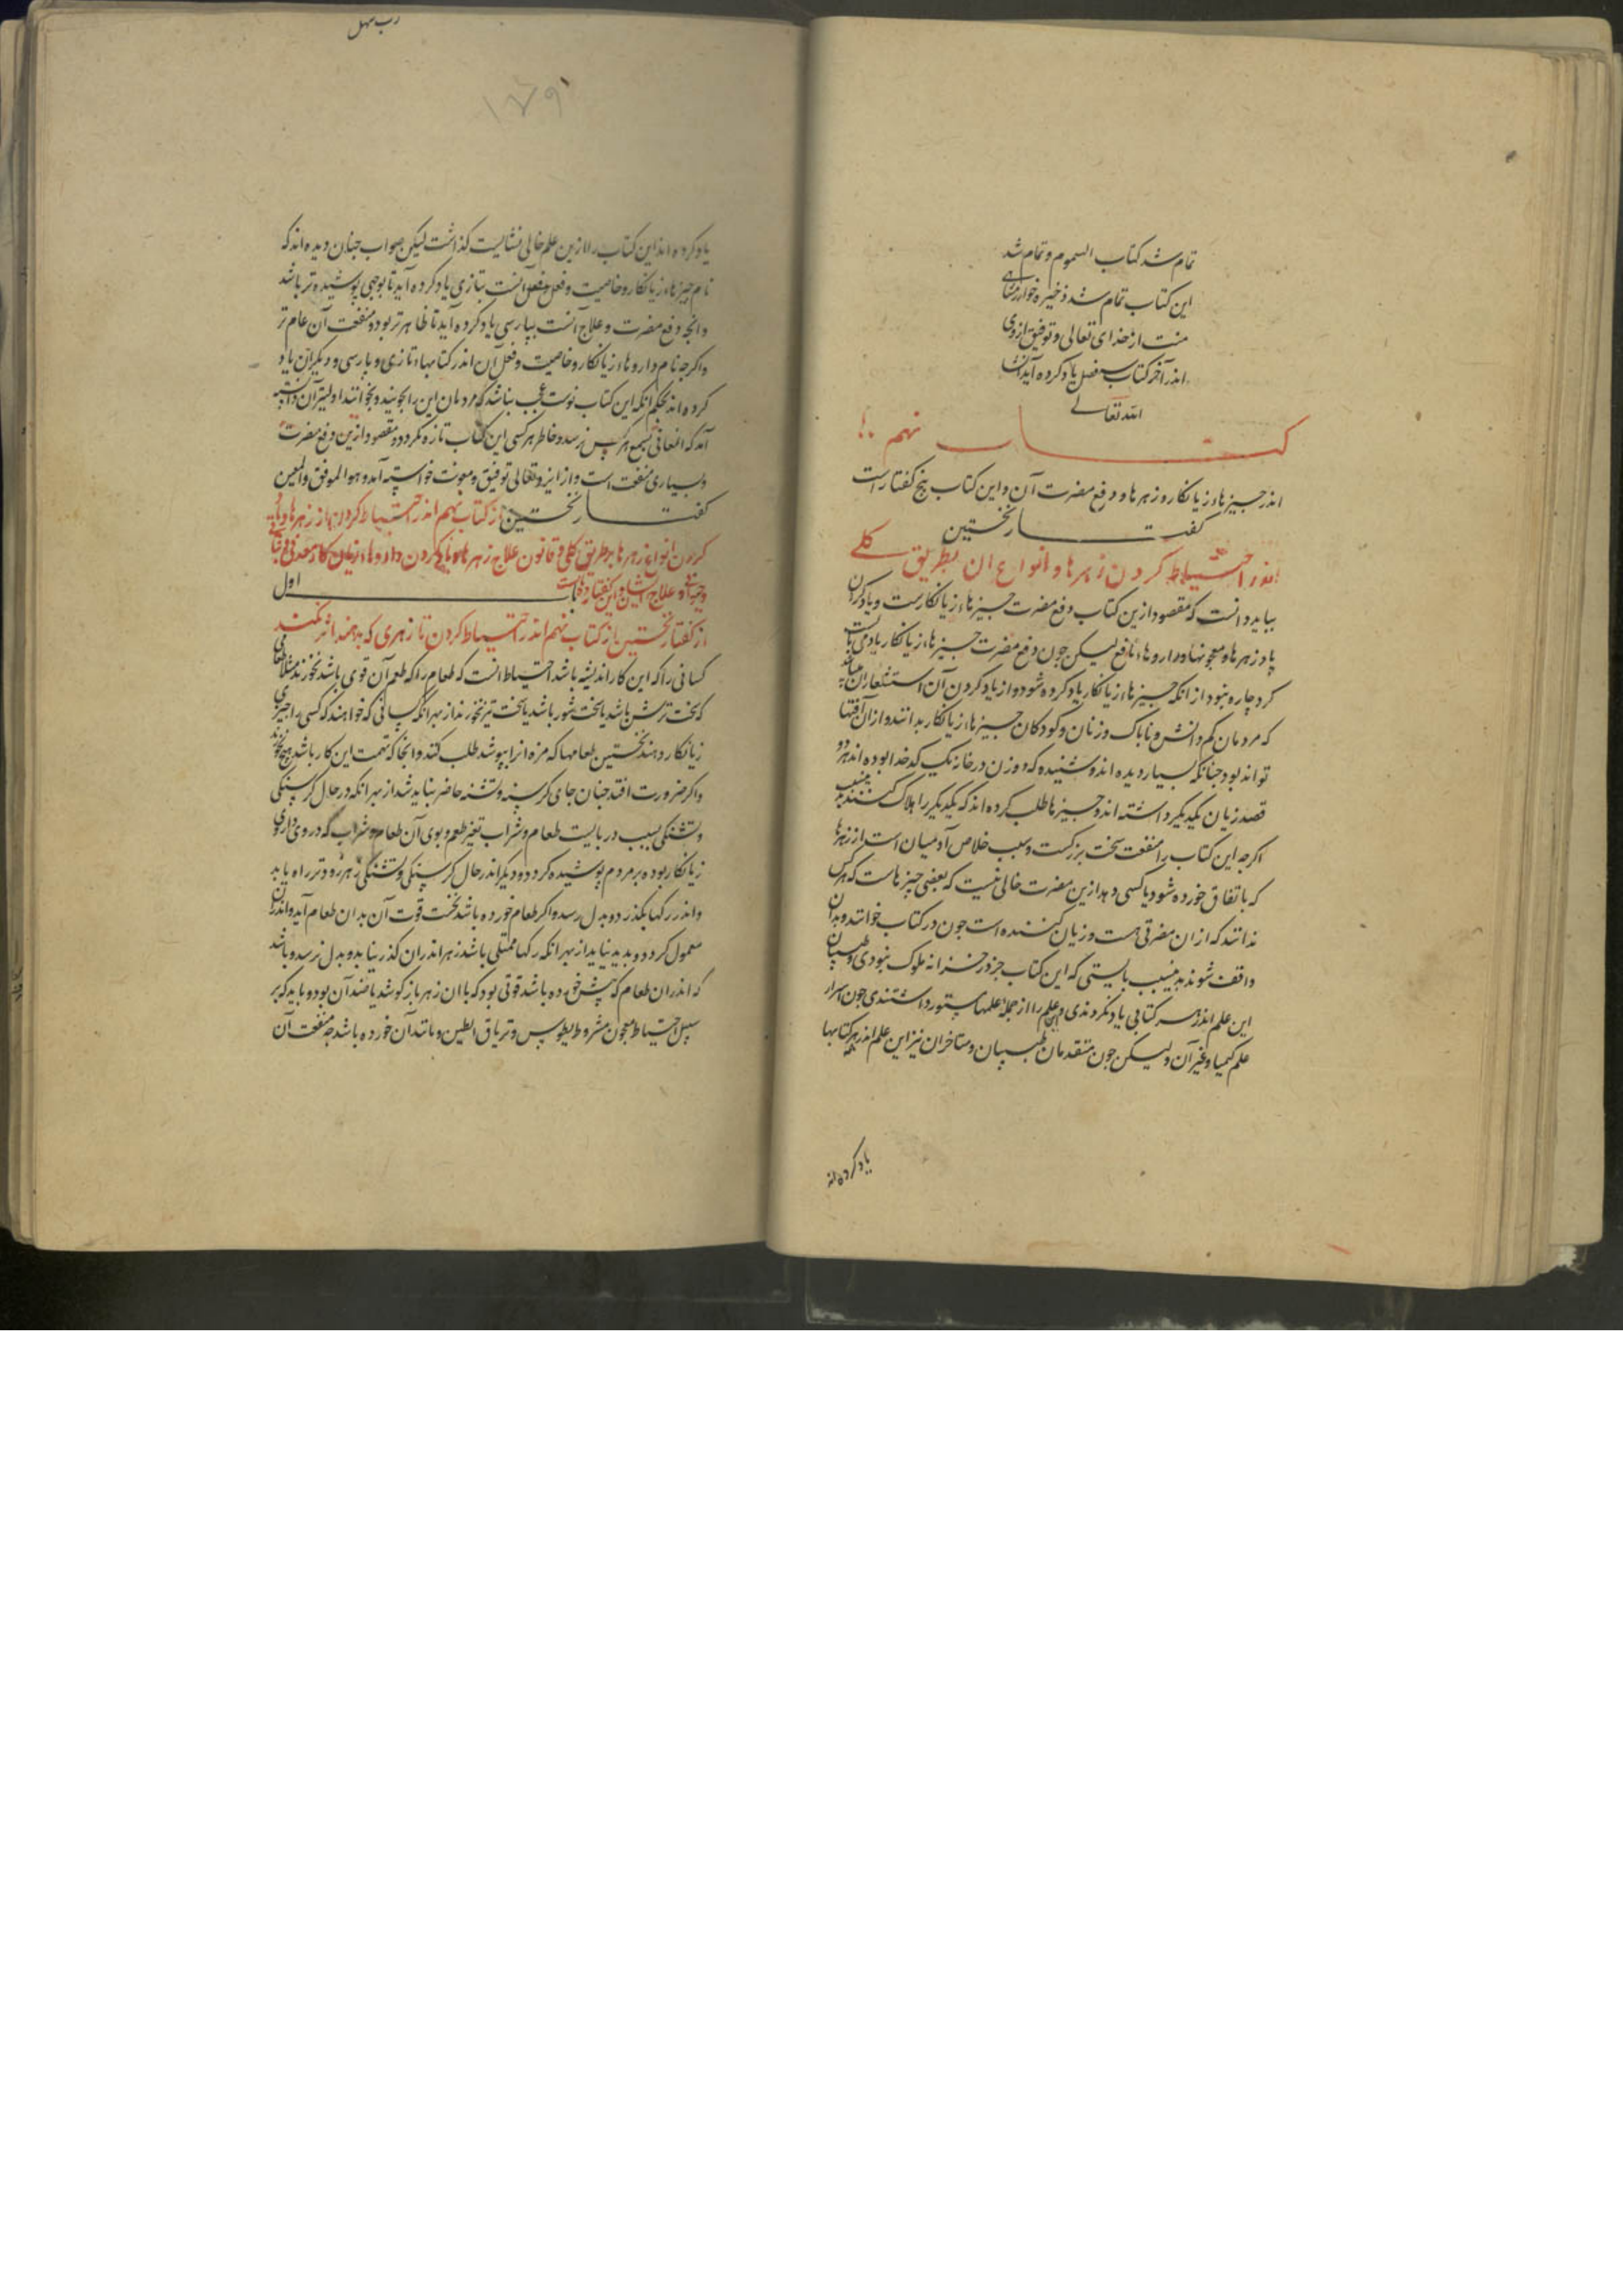 تمام شد کتاب السموم و تمام شد
این کتاب تمام شد ذخیره خوارزمشاهی
منت از خدای تعالی و توفیق از وی
اندر آخر کتاب سه فصل یاد کرده آید انشا
الله تعالی
کتاب نهم
اندر جیزهاء زیانکار و زهرها و دفع مضرت آن و این کتاب پنج کفتار است
کفتار نخستین
اندر احتیاط کردن زهرها و انواع ان بطریق کلی
بباید دانست که مقصود ازین کتاب دفع مضرت جیزهاء زیانکارست و یاد کردن
پاد زهرها و معجونها و داروهاء نافع لیکن جون دفع مضرت جیزهاء زیانکار یاد می بایست
کرد جاره نبود از انکه جیزهاء زیانکار یاد کرده شود و از یاد کردن آن استشعار ان
که مردمان کم دانش و ناباک و زنان و کودکان جیزهاء زیانکار بدانند و از ان آفتها
تواند بود جنانکه بسیار دیده اند و شنیده که دو زن در خانه یک کدخدا بوده اند هر دو
قصد زیان یکدیکر داشته اند و جیزها طلب کرده اند که یکدیکر را هلاک کنند
اکرجه این کتاب را منفعت سخت بزرکست و سبب خلاص آدمیان است از زهرها
که باتفاق خورده شود یا کسی دهد ازین مضرت خالی نیست که بعضی جیزهاست که هرکس
ندانند که از ان مضرتی هست و زیان کننده است جون در کتاب خوانند و بدان
واقف شوند بدین سبب بایستی که این کتاب جز در خزانه ملوک نبودی و طبیبان
این علم اندر هر کتابی یاد نکردندی و این علم را از جمله علمهاء مستور داشتندی جون اسرار
علم کیمیا و غیر آن ولیکن جون متقدمان طبیبان و متاخران نیز این علم اندر کتابها
یاد کرده اند
رب سهل
۱۷۹
یاد کرده اند این کتاب را از این علم خالی نشایست کذاشت لیکن صواب جنان دیده اند که
نام جیزهاء زیانکار و خاصیت و فعل آنست بتازی یاد کرده آید تا بوجهی پوشیده تر باشد
و انجه دفع مضرت و علاج آنست بپارسی یاد کرده آید تا ظاهرتر بود و منفعت آن عام تر
و اکرجه نام داروهاء زیانکار و خاصیت و فعل ان اندر کتابهاء تازی و پارسی و دیکران یاد
کرده اند بحکم انکه این کتاب نوست عجب نباشد که مردمان این را بجویند و بخوانند
آمد که المعانی بسمع هرکس نرسد و خاطر هر کسی این کتاب تازه نکردد و مقصود ازین دفع مضرت
و بسیاری منفعت است و از ایزد تعالی توفیق و معونت خواسته آمد و هو الموفق والمعین
کفتار نخستین از کتاب نهم اندر احتیاط کردن از زهرها و یاد
کردن انواع زهرها بر طریق کلی و قانون علاج زهرها و یاد کردن داروهاء زیان کار معدنی و نباتی
و حیوانی و علاج ایشان و این کفتار باب اول
از کفتار نخستین از کتاب نهم اندر احتیاط کردن تا زهری که بدهند اثر نکند
کسانی را که این کار اندیشه باشد احتیاط انست که طعام را که طعم آن قوی باشد نخورند مثلا طعامی
که سخت ترش باشد یا سخت شور باشد یا سخت تیز نخورند از بهر انکه کسانی که خواهند که کسی را جیزی
زیانکار دهند نخستین طعامها که مزه انرا بپوشد طلب کنند و انجا که تهمت این کار باشد هیج نخورند
و اکر ضرورت افتد جنان جای کرسنه و تشنه حاضر نباید شد از بهر انکه در حال کرسنکی
و تشنکی بسبب دربایست طعام و شراب تغیر طعم و بوی آن طعام و شراب که در وی داروی
زیانکار بوده بر مردم پوشیده کردد و دیکر اندر حال کرسنکی و تشنکی زهر زودتر راه یابد
و اندر رکها بکذرد و بدل رسد و اکر طعام خورده باشد نخست قوت آن بدان طعام آید و اندران
معمول کردد و پدید نیاید از بهر انکه رکها ممتلی باشد زهر اندران کذر نیابد و بدل نرسد و باشد
که اندران طعام که پیش خورده باشد قوتی بود که با ان زهر باز کوشد یا ضد آن بود و باید که بر
سبیل احتیاط معجون مثرودیطوس و تریاق الطین و مانند آن خورده باشد جه منفعت آن